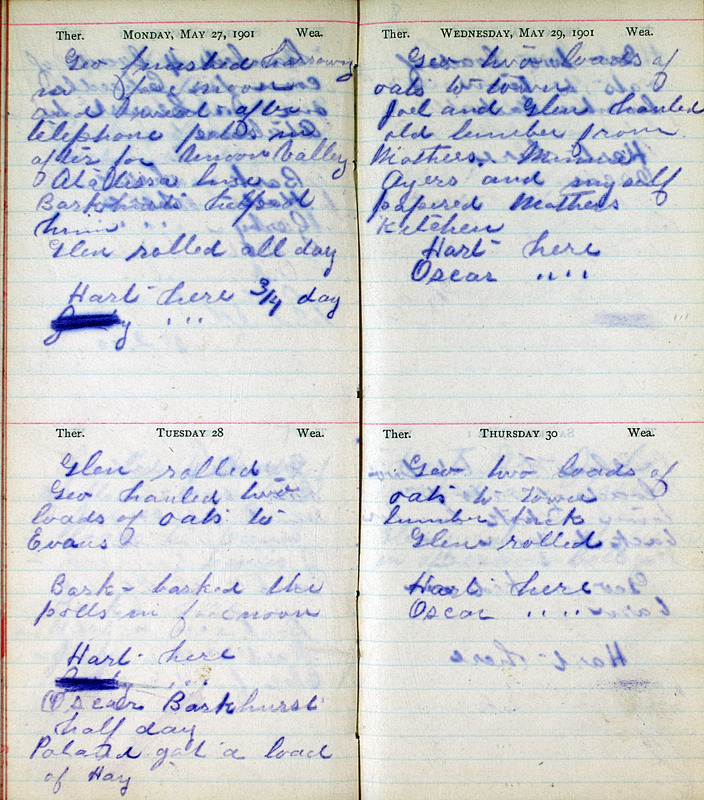 Ther. MONDAY, MAY 27, 1901 Wea.
Geo finished harrowing
in the
and hauled
telephone polls in
after for Union Valley
Atalissa line
Barkhurst helped
him
Glen rolled all day
Hart here 3/4 day
" " "
Ther. TUESDAY 28 Wea.
Glen rolled
Geo hauled two
loads of oats to
Evans
Bark - barked the
polls in forenoon
Hart here
" " "
Oscar Barkhurst
half day
Poland got a load
of Hay
Ther. WEDNESDAY, MAY 29, 1901 Wea.
Geo two loads of
oats to town
Joel and Glen hauled
old lumber from
Mathers. Minnie
Ayers and myself
papered Mathers
Kitchen
Hart here
Oscar " "
Ther. THURSDAY 30 Wea.
Geo two loads of
oats to town
lumber back
Glen rolled
Hart here
Oscar " "